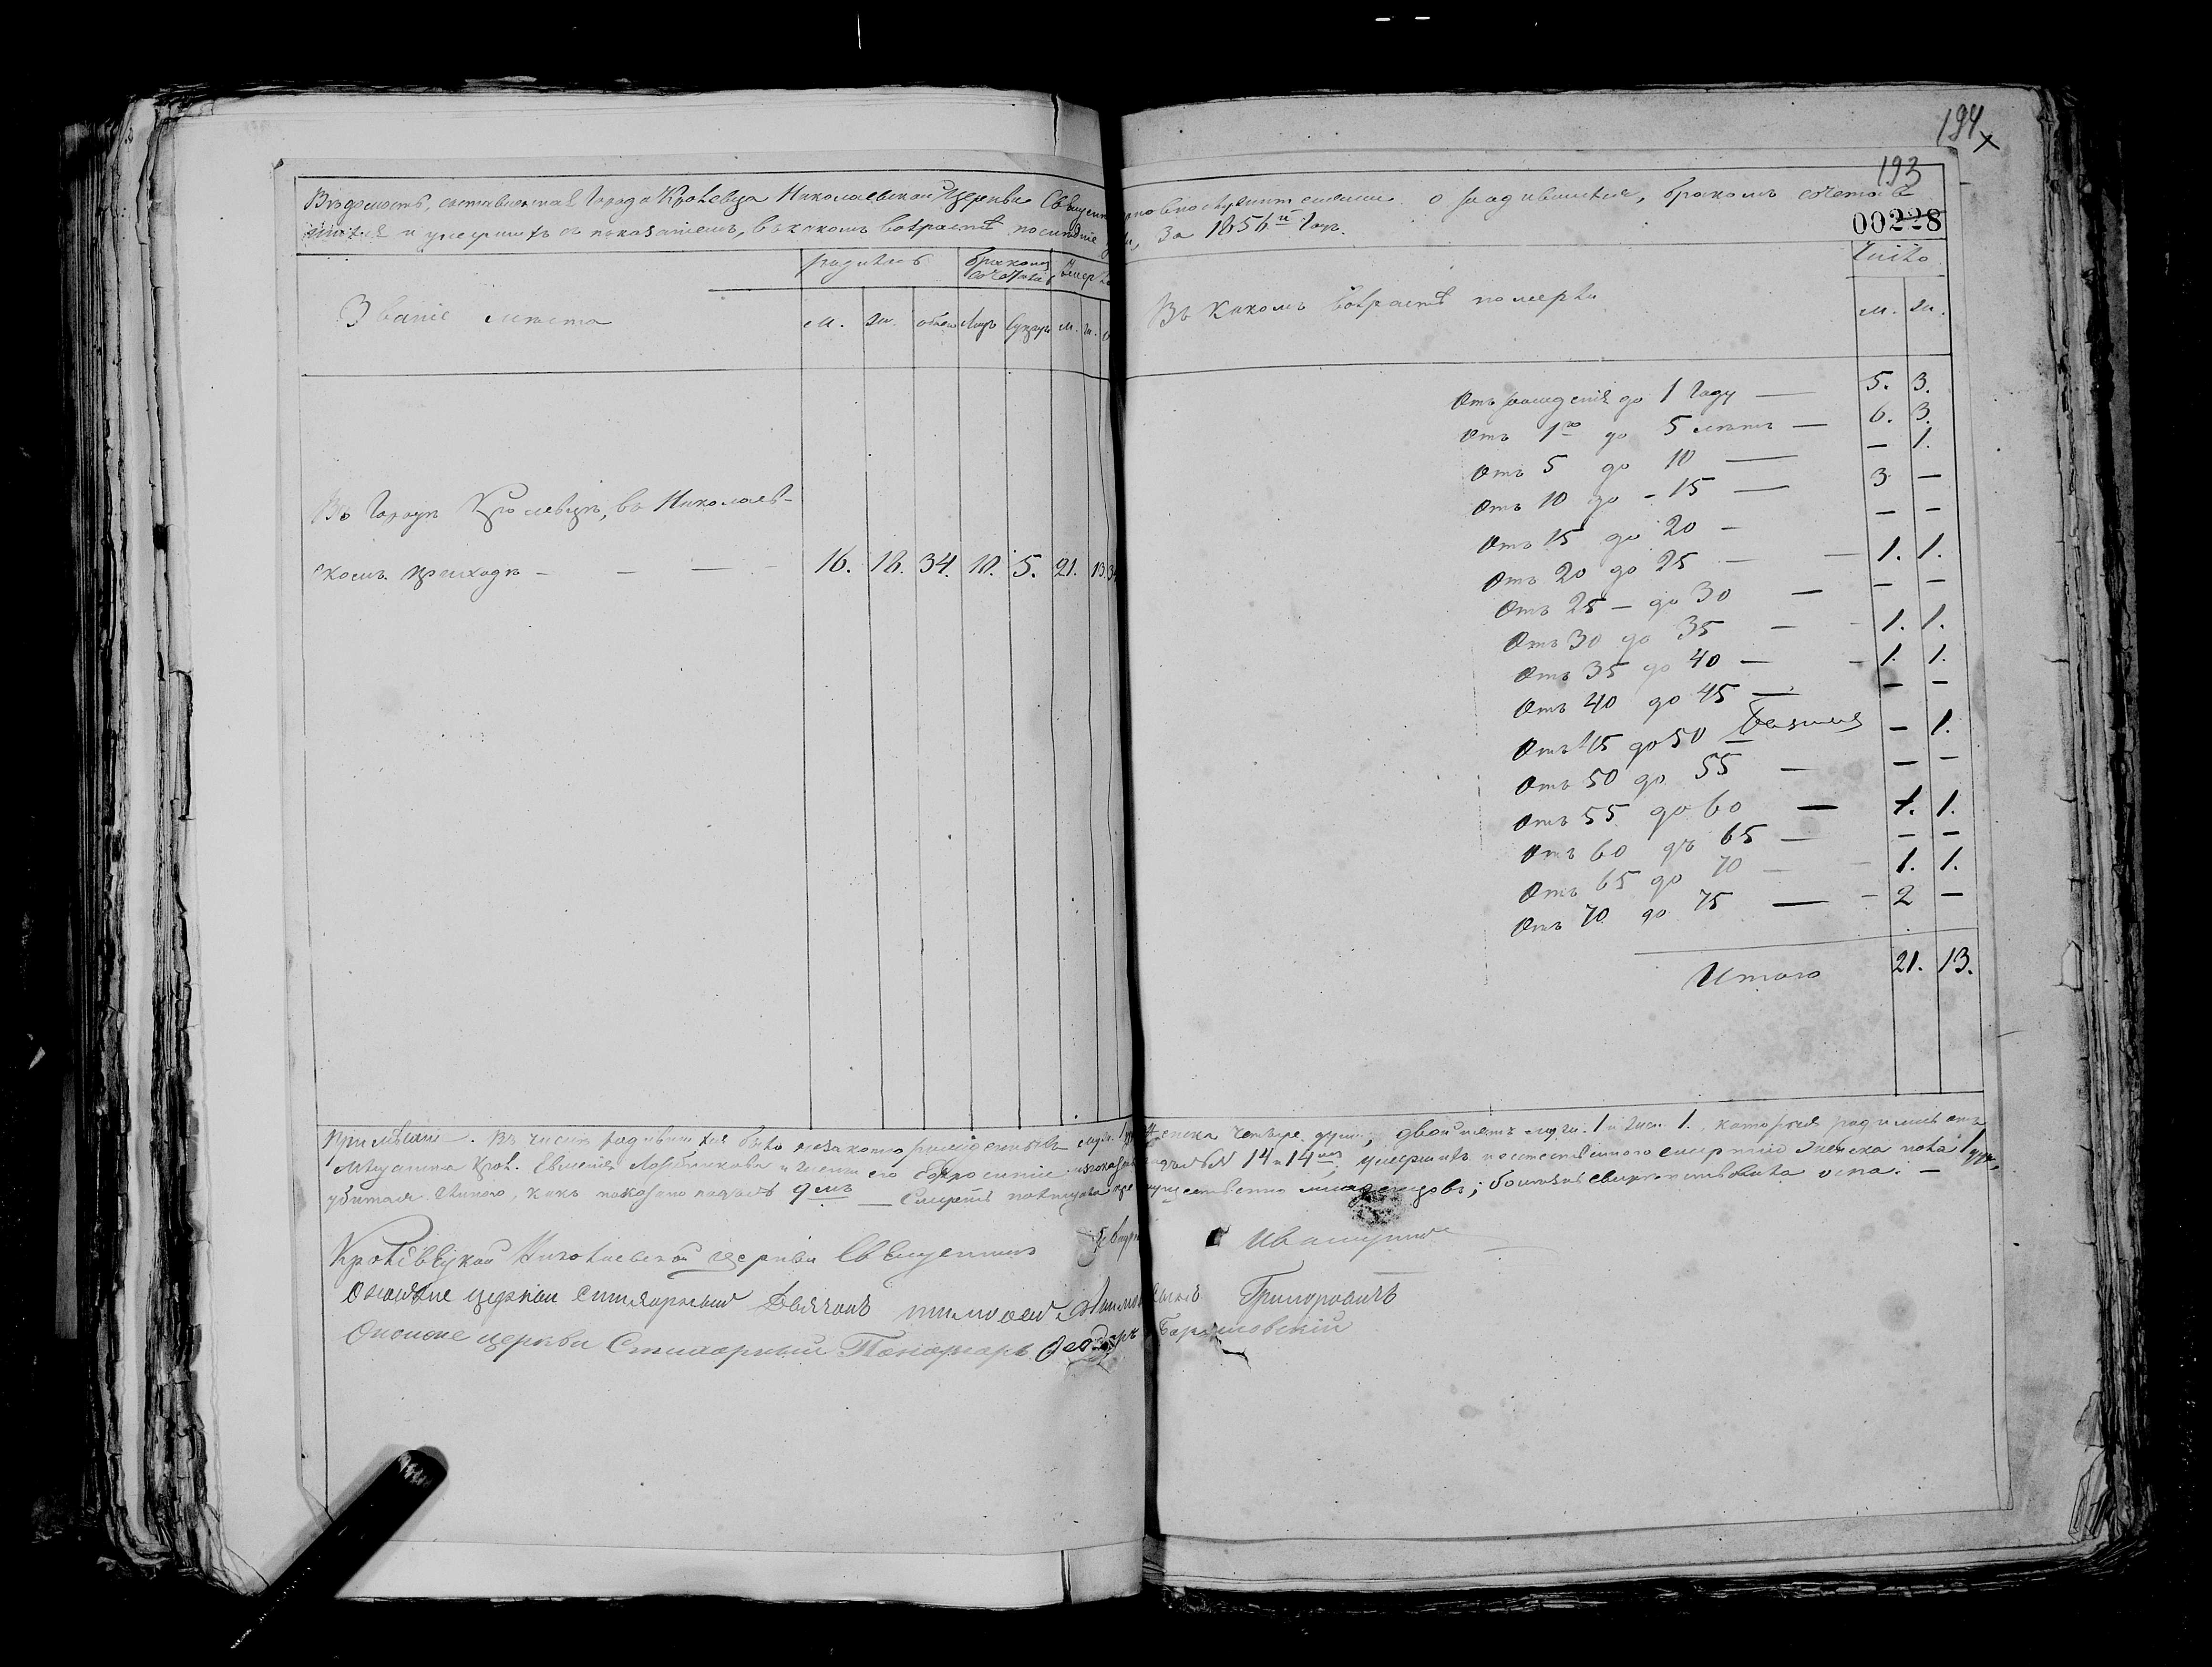 194 x
193
00228
Вѣдомость, составленная Города Кролевца Николаевской Церкви Священноцерковнослужителями о родившихся, бракомъ сочетав-
шихся и умершихъ съ показаніемъ, въ какомъ возрастѣ последніе за 1856й Годъ.
Званіе мѣста
родилось
бракомъ сочеталось
Умер
м. ж. обоего Лицъ Супруж м. ж.
Въ какомъ возрастѣ померли
Число
м. ж.
Въ Городѣ Кролевцѣ, въ Николаев-
скомъ приходѣ — — — 16. 18. 34. 10. 5. 21. 13. 34
Отъ рожденія до 1 Году — 5. 3.
Отъ 1го до 5 летъ — 6. 3.
Отъ 5 до 10 — — 1.
Отъ 10 до - 15 — 3 —
Отъ 15 до 20 — — —
Отъ 20 до 25 — 1. 1.
Отъ 25 — до 30 — — —
Отъ 30 до 35 — 1. 1.
Отъ 35 до 40 — 1. 1.
Отъ 40 до 45 — — —
Отъ 45 до 50 — — 1.
Отъ 50 до 55 — — —
Отъ 55 до 60 — 1. 1.
Отъ 60 до 65 — — —
Отъ 65 до 70 — 1. 1.
Отъ 70 до 75 — 2 —
Итого 21. 13.
Примѣчаніе. Въ числѣ родившихся было незаконнорожденныхъ муж. 1 женска четыре души, двойнятъ муж. 1 и жен. 1. которыя родились отъ
мѣщанина Крол. Евменія и жены его Ефросиніи показаны подъ № 14 и 14мъ умершихъ неестественною смертію женска пола 1 душа,
убитая, какъ показано подъ № 9мъ — Смерть постигала преимущественно младенцовъ; болѣзнь свирепствовала оспа. —
Кролевецкой Николаевской церкви Священникъ Ивашутичъ
Оной же церкви Стихарный Дьячокъ Тимофей Григоровичъ
Оной же церкви Стихарный Пономарь Феодоръ Барановскій